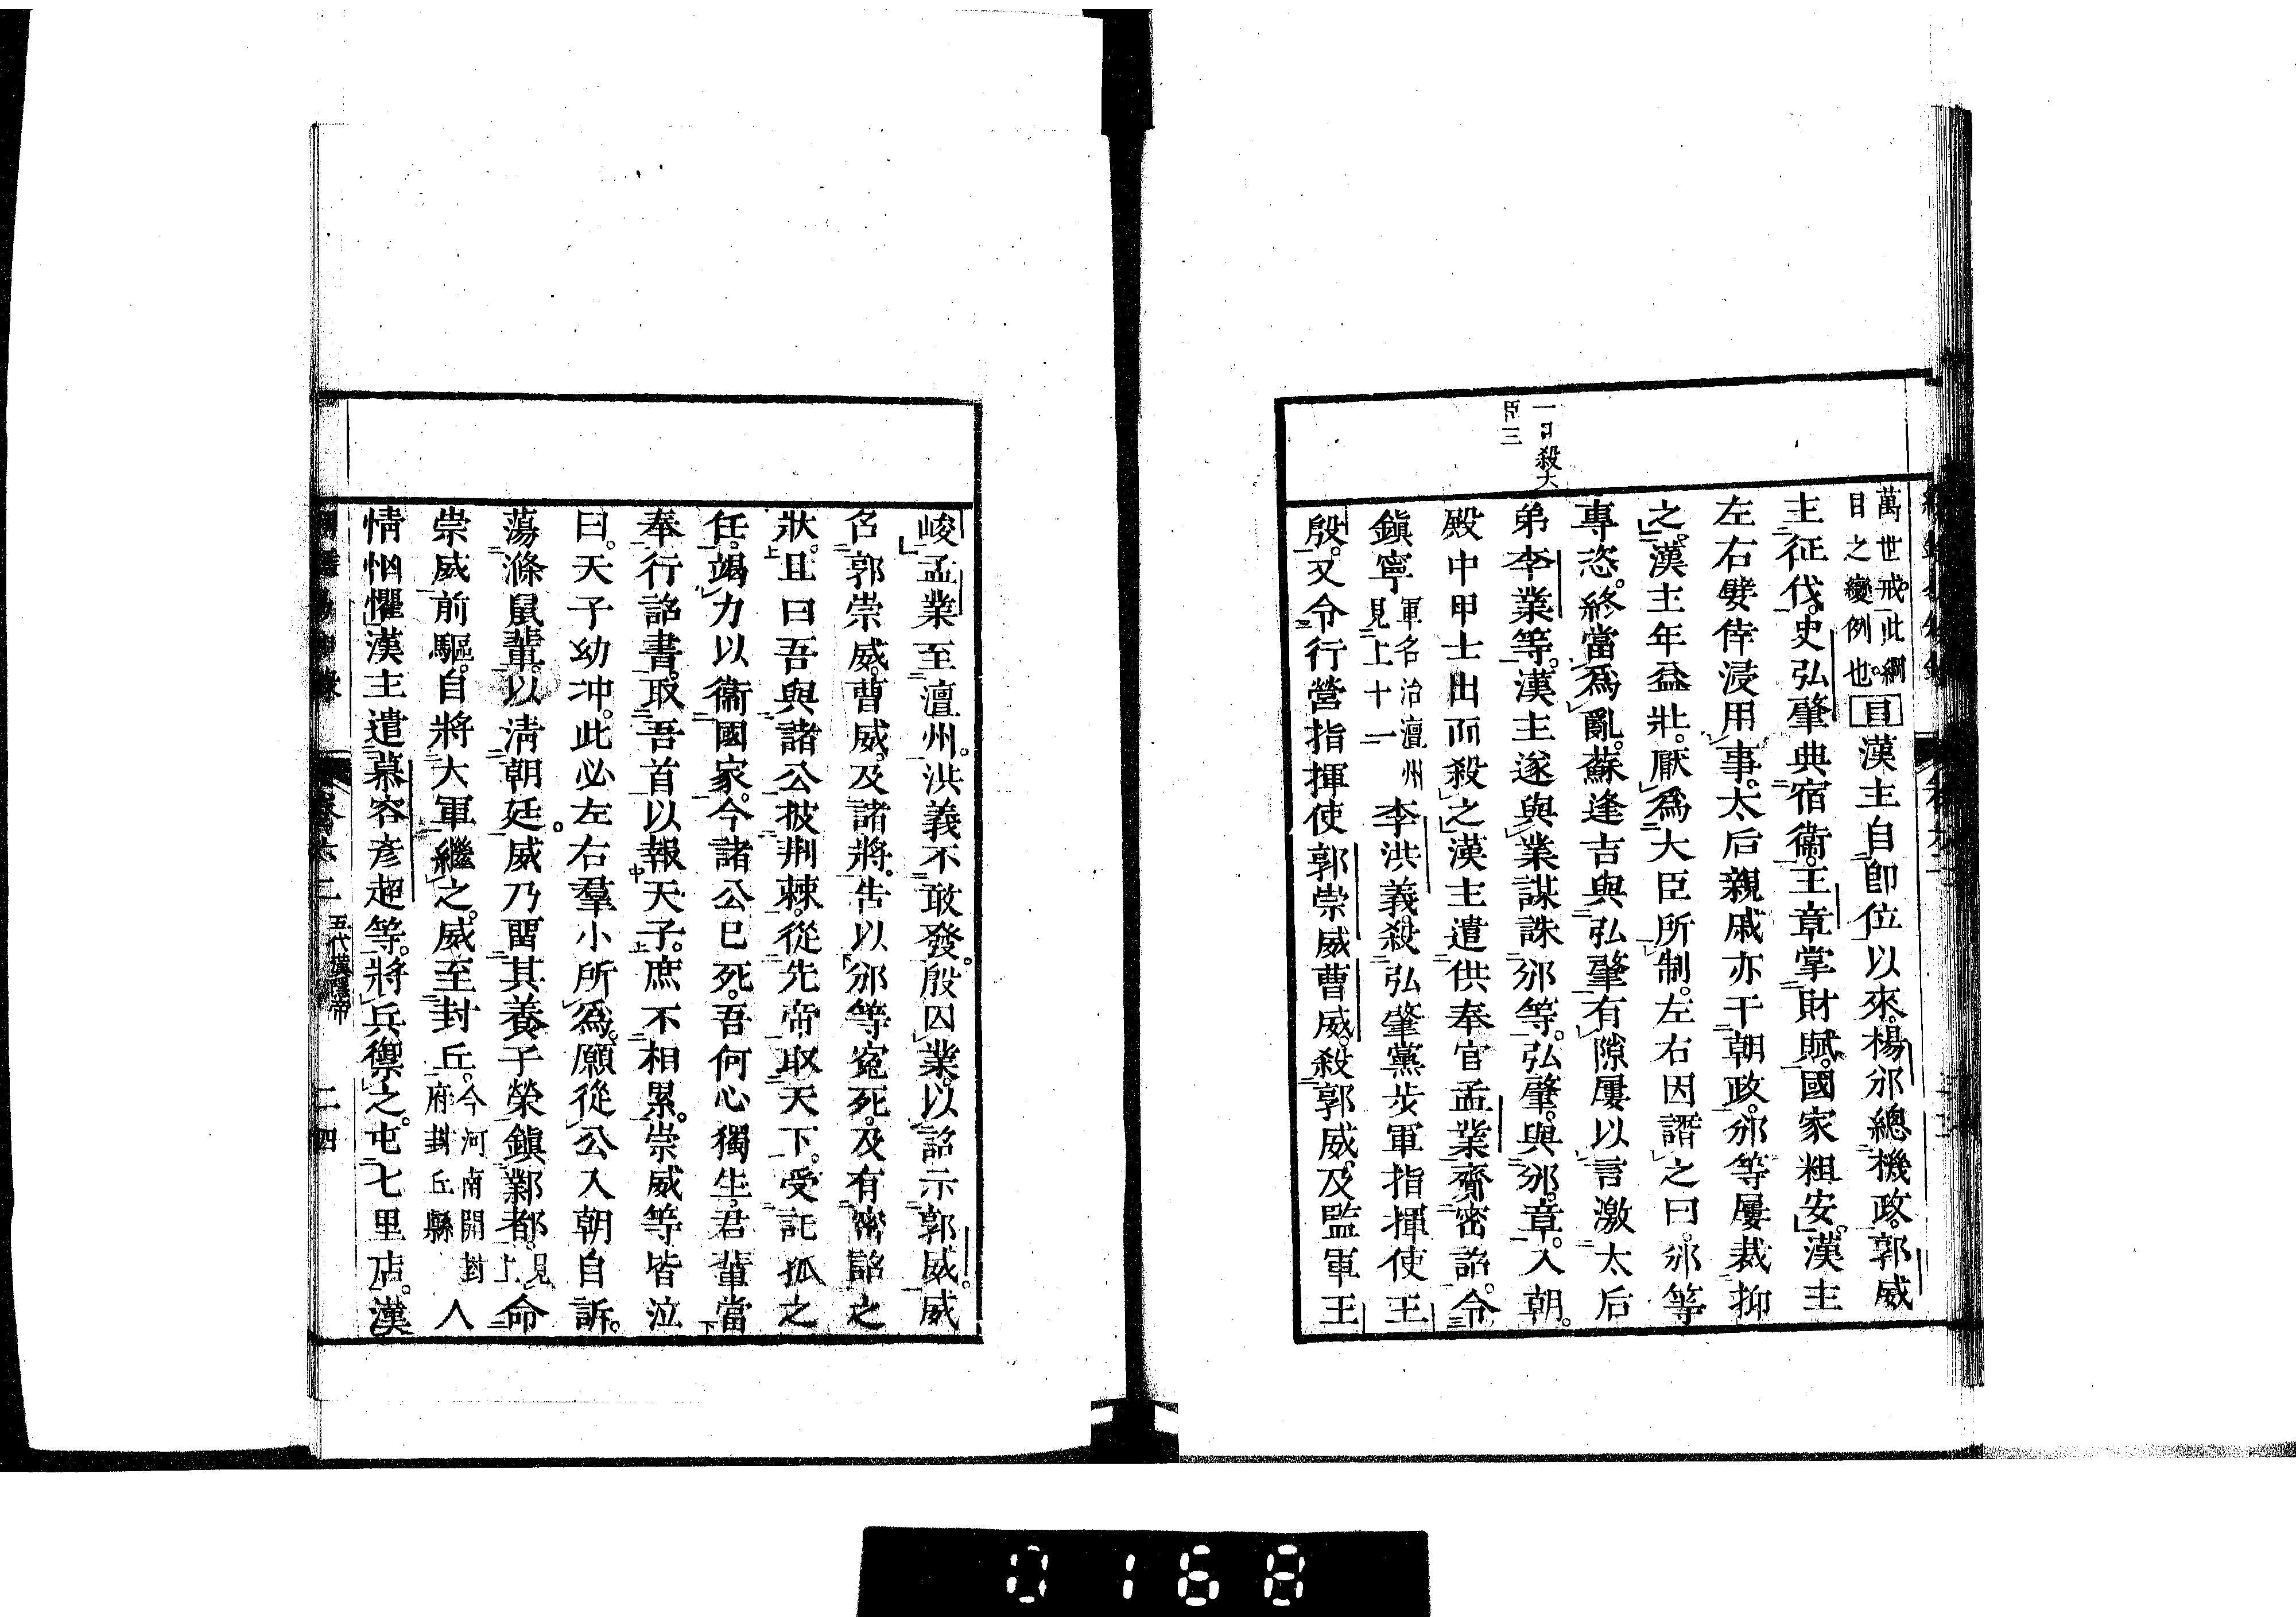 一日殺大
臣三
萬世戒。此綱
目之變例也。
目漢主自卽位以來。楊邠總機政。郭威
主征伐。史弘肇典宿衞。王章掌財賦。國家粗安。漢主
左右嬖倖浸用事。太后親戚亦干朝政。邠等屢裁抑
之。漢主年益壯。厭爲大臣所制。左右因譖之曰。邠等
專恣。終當爲亂。蘇逢吉與弘肇有隙屢以言激太后
弟李業等。漢主遂與業謀誅邠等。弘肇。與邠。章。入朝。
殿中甲士出而殺之漢主遣供奉官孟業齎密詔。令
鎭寧
軍名治澶州
見上十一
李洪義。殺弘肇黨步軍指揮使王
殷。又令行營指揮使郭崇威曹威。殺郭威。及監軍王
峻孟業至澶州。洪義不敢發。殷囚業。以詔示郭威。威
召郭崇威。曹威。及諸將。告以邠等冤死。及有密詔之
狀。且曰吾與諸公披荆棘。從先帝取天下。受託孤之
任。竭力以衞國家。今諸公已死。吾何心獨生。君輩當
奉行詔書。取吾首以報天子。庶不相累。崇威等皆泣
曰。天子幼冲。此必左右羣小所爲。願從公入朝自訴。
蕩滌鼠輩。以淸朝廷。威乃留其養子榮鎭鄴都。
見
上
命
崇威前驅。自將大軍繼之。威至封丘。
今河南開封
府封丘縣
人
情恟懼漢主遣慕容彥超等。將兵禦之。屯七里店。漢
卷六二
五代漢隱帝
二四
0168